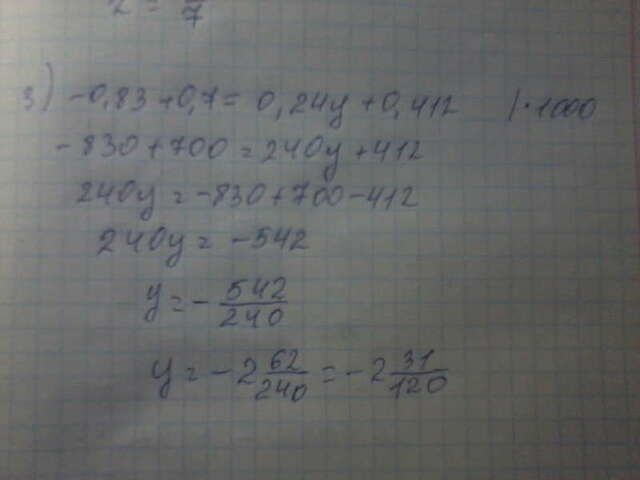 2 = 7
3) -0,83+0,7 = 0,24y+0,412 | · 1000
-830+700 = 240y+412
240y = -830+700-412
240y = -542
y = - 542/240
y = -2 62/240 = -2 31/120